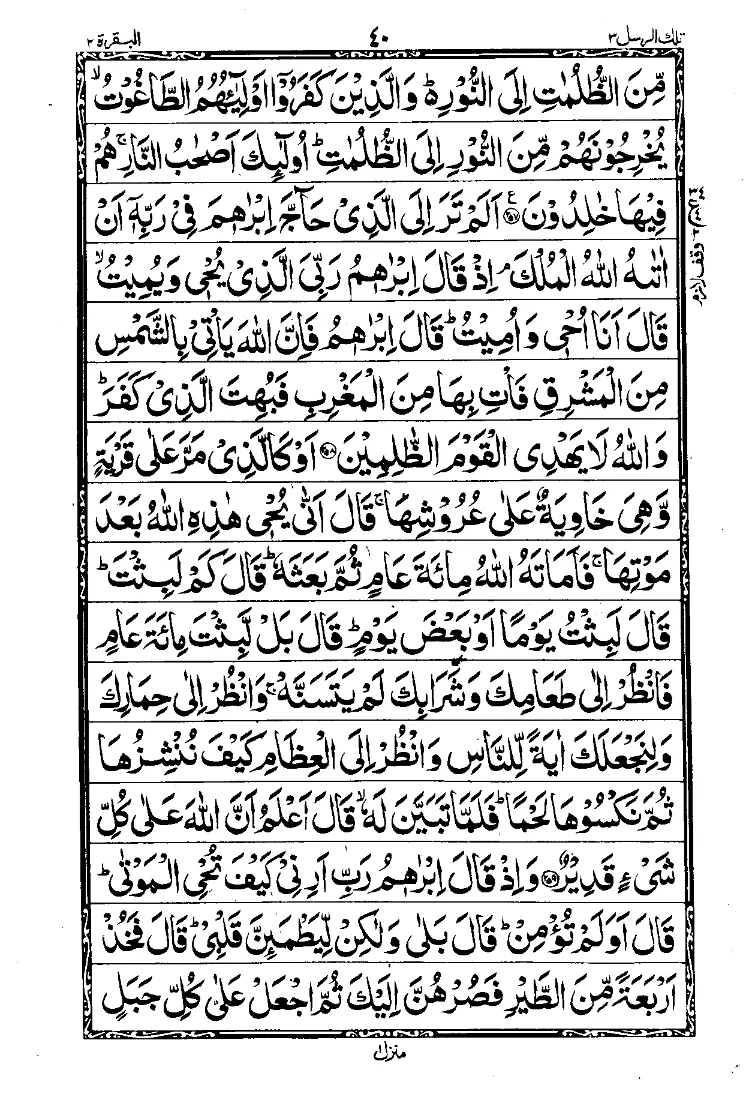 تلك الرسل ٣
٤٠
البقرة ٢
مِّنَ الظُّلُمٰتِ اِلَى النُّوْرِ۬ؕ وَالَّذِيْنَ كَفَرُوْۤا اَوْلِيٰٓئُهُمُ الطَّاغُوْتُۙ
يُخْرِجُوْنَهُمْ مِّنَ النُّوْرِ اِلَى الظُّلُمٰتِؕ اُولٰٓئِكَ اَصْحٰبُ النَّارِۚ هُمْ
فِيْهَا خٰلِدُوْنَ ۝٢٥٧ اَلَمْ تَرَ اِلَى الَّذِيْ حَآجَّ اِبْرٰهٖمَ فِيْ رَبِّهٖۤ اَنْ
اٰتٰىهُ اللّٰهُ الْمُلْكَۘ اِذْ قَالَ اِبْرٰهٖمُ رَبِّيَ الَّذِيْ يُحْيٖ وَيُمِيْتُۙ
قَالَ اَنَا اُحْيٖ وَاُمِيْتُؕ قَالَ اِبْرٰهٖمُ فَاِنَّ اللّٰهَ يَاْتِيْ بِالشَّمْسِ
مِنَ الْمَشْرِقِ فَاْتِ بِهَا مِنَ الْمَغْرِبِ فَبُهِتَ الَّذِيْ كَفَرَؕ
وَاللّٰهُ لَا يَهْدِى الْقَوْمَ الظّٰلِمِيْنَ ۝٢٥٨ اَوْ كَالَّذِيْ مَرَّ عَلٰى قَرْيَةٍ
وَّهِيَ خَاوِيَةٌ عَلٰى عُرُوْشِهَاۚ قَالَ اَنّٰى يُحْيٖ هٰذِهِ اللّٰهُ بَعْدَ
مَوْتِهَاۚ فَاَمَاتَهُ اللّٰهُ مِائَةَ عَامٍ ثُمَّ بَعَثَهٗؕ قَالَ كَمْ لَبِثْتَؕ
قَالَ لَبِثْتُ يَوْمًا اَوْ بَعْضَ يَوْمٍؕ قَالَ بَلْ لَّبِثْتَ مِائَةَ عَامٍ
فَانْظُرْ اِلٰى طَعَامِكَ وَشَرَابِكَ لَمْ يَتَسَنَّهْۚ وَانْظُرْ اِلٰى حِمَارِكَ
وَلِنَجْعَلَكَ اٰيَةً لِّلنَّاسِ وَانْظُرْ اِلَى الْعِظَامِ كَيْفَ نُنْشِزُهَا
ثُمَّ نَكْسُوْهَا لَحْمًاؕ فَلَمَّا تَبَيَّنَ لَهٗۙ قَالَ اَعْلَمُ اَنَّ اللّٰهَ عَلٰى كُلِّ
شَيْءٍ قَدِيْرٌ ۝٢٥٩ وَاِذْ قَالَ اِبْرٰهٖمُ رَبِّ اَرِنِيْ كَيْفَ تُحْيِ الْمَوْتٰىؕ
قَالَ اَوَلَمْ تُؤْمِنْؕ قَالَ بَلٰى وَلٰكِنْ لِّيَطْمَئِنَّ قَلْبِيْؕ قَالَ فَخُذْ
اَرْبَعَةً مِّنَ الطَّيْرِ فَصُرْهُنَّ اِلَيْكَ ثُمَّ اجْعَلْ عَلٰى كُلِّ جَبَلٍ
وقف لازم
منزل ١